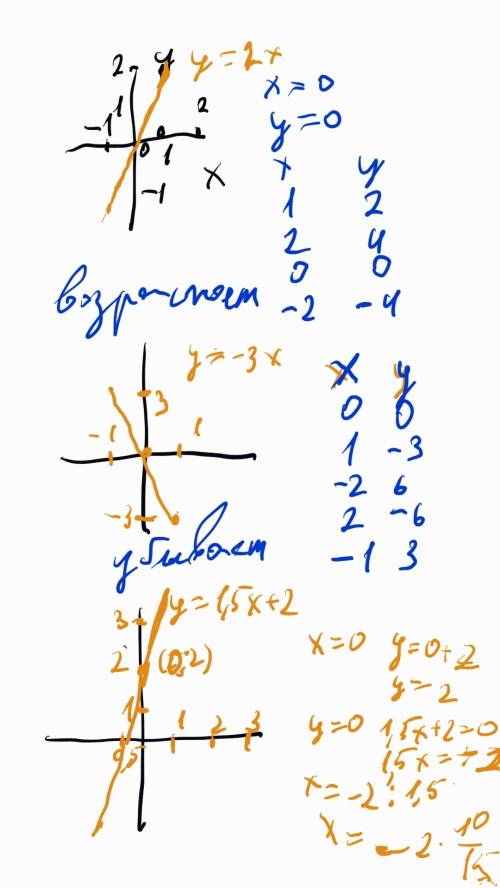 2 y y = 2x
x = 0
1 2
-1 y = 0
0 1
x y
-1 x
1 2
2 4
0 0
возрастает -2 -4
y = -3x
x y
3 0 0
-1 1 1 -3
-2 6
-3 2 -6
убывает -1 3
y = 1,5x+2
3
x=0 y=0+2
2 (0;2)
y=2
1 1 2 3 y=0 1,5x+2=0
0,5 1,5x=-2
x=-2:1,5
x=-2·10/15